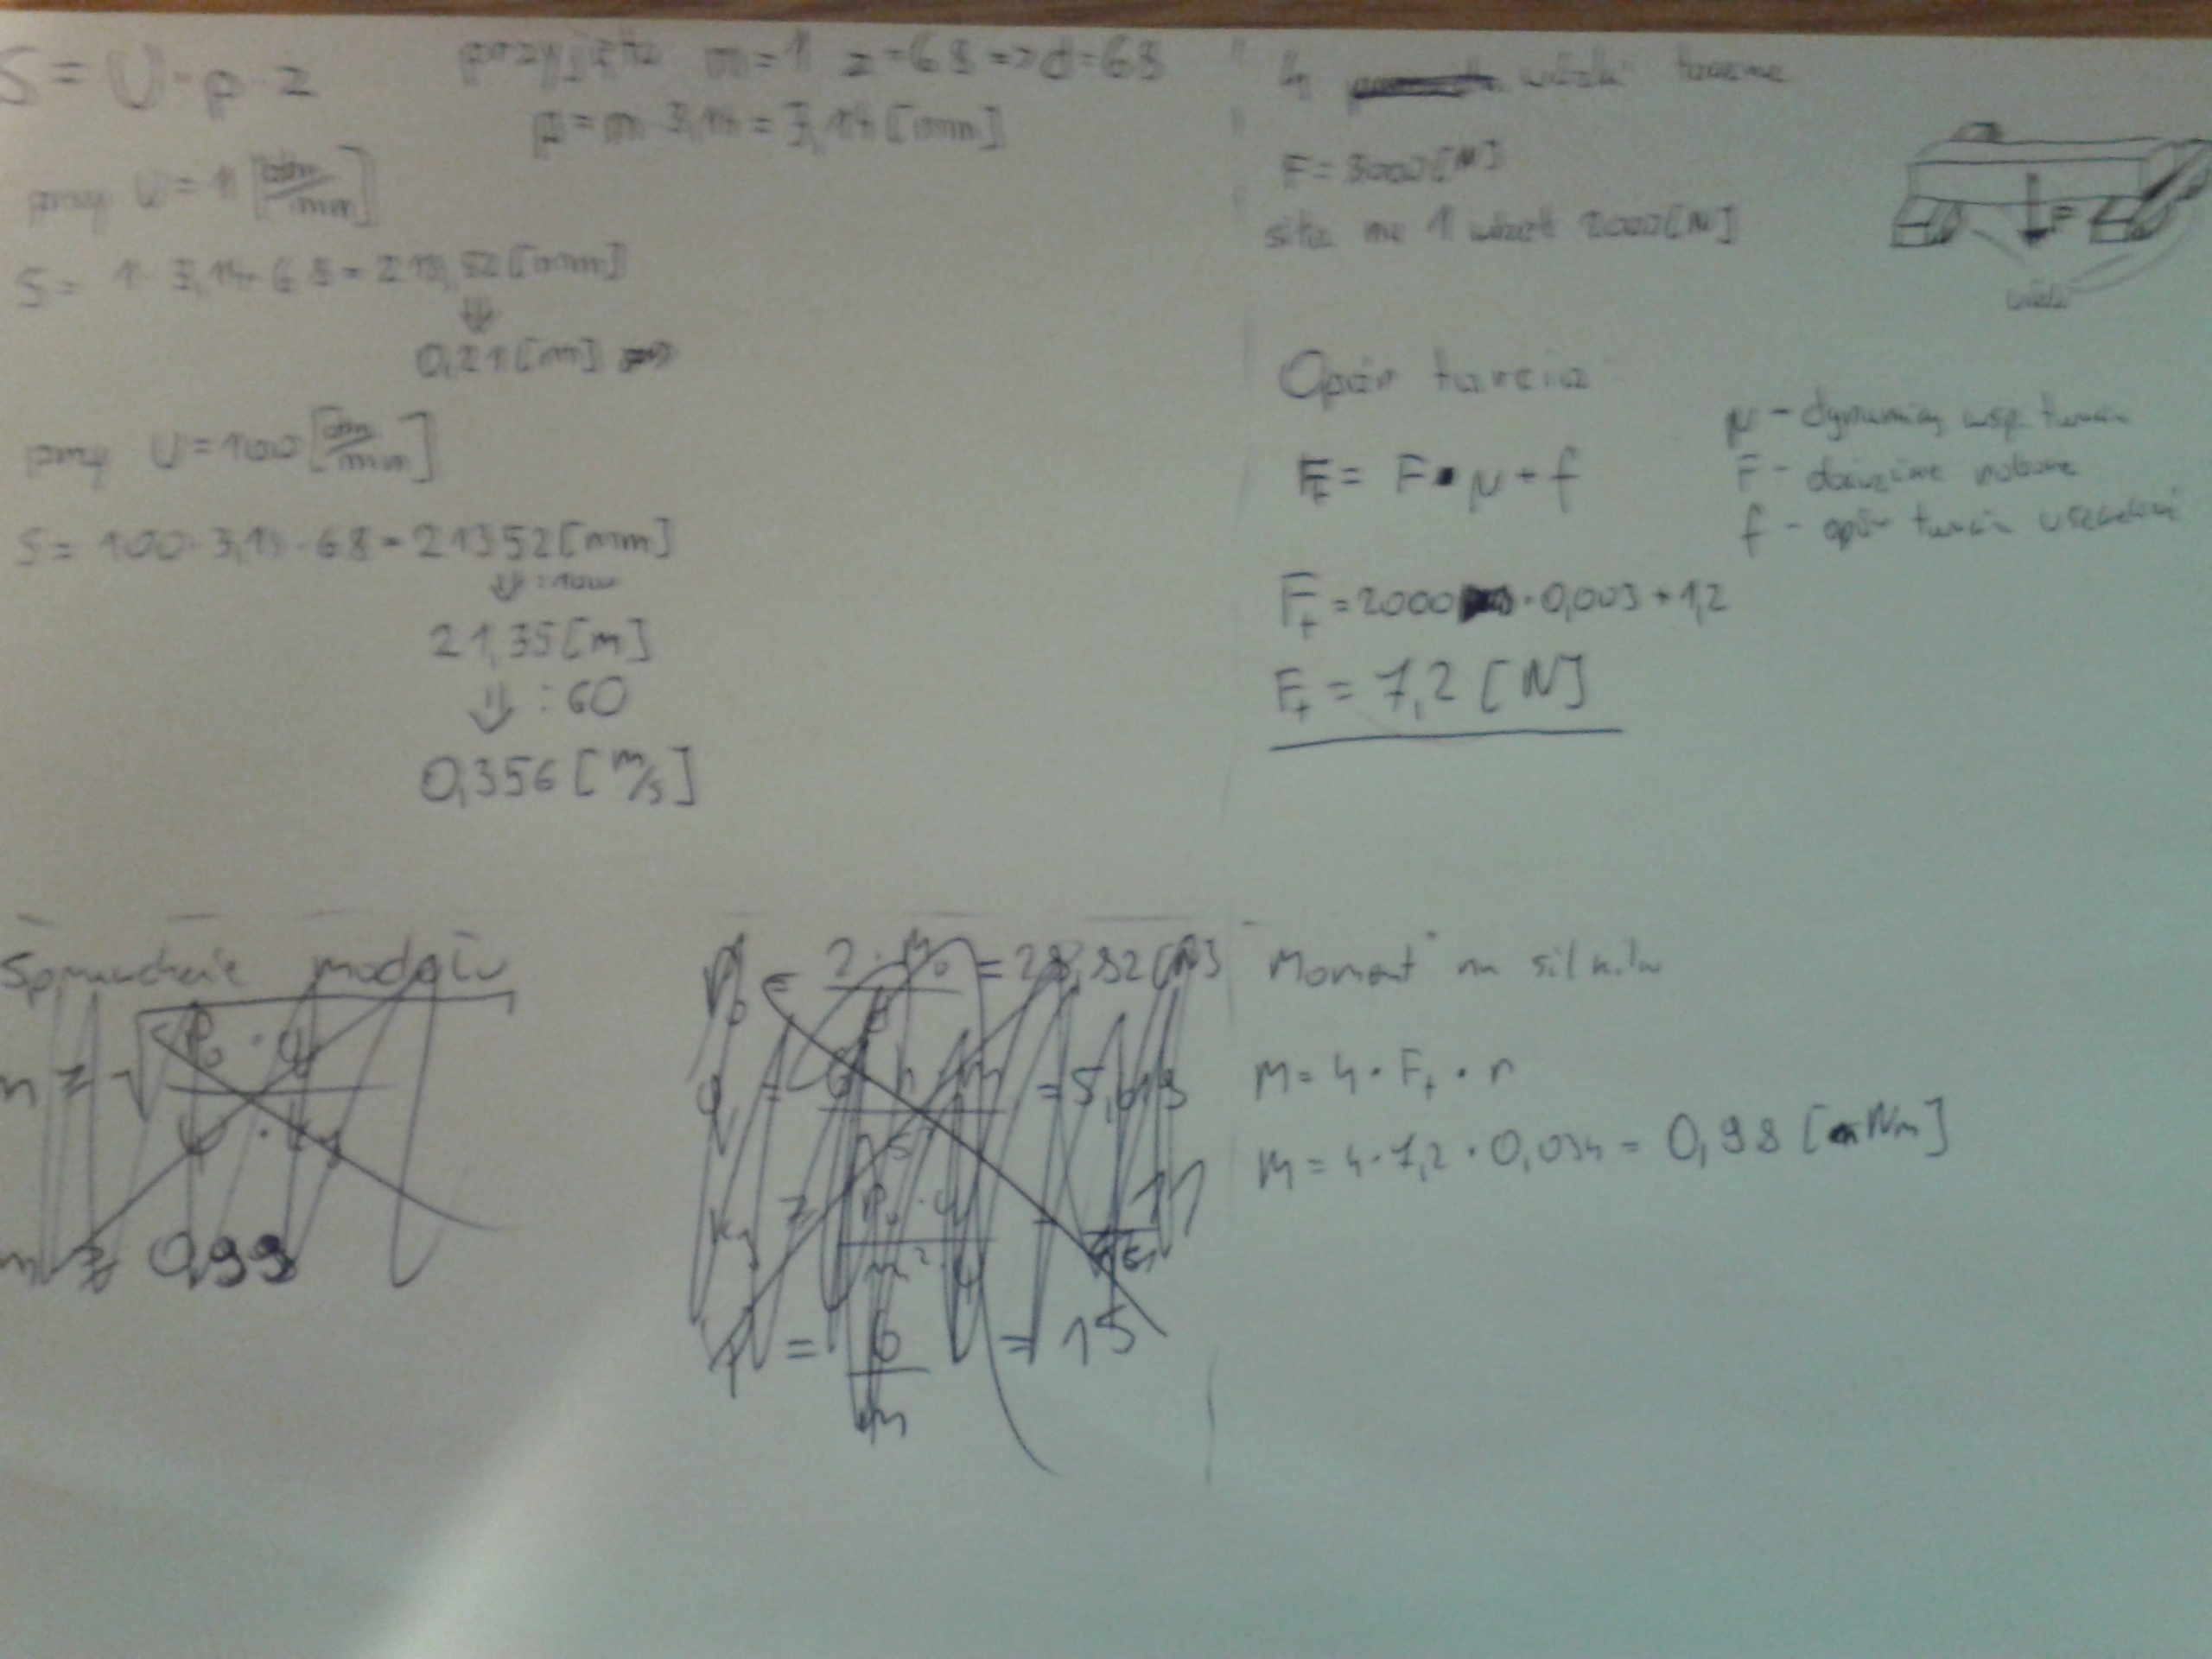 S = U · p · z
przyjęto m = 1 z = 68 => d = 68
p = m · 3,14 = 3,14 [mm]
przy U = 1 [obr/min]
S = 1 · 3,14 · 68 = 213,52 [mm]
⇓
0,21 [m]
przy U = 100 [obr/min]
S = 100 · 3,14 · 68 = 21352 [mm]
⇓ : 1000
21,35 [m]
⇓ : 60
0,356 [m/s]
4 wózki toczne
siła na 1 wózek 2000 [N]
F
wózki
Opór tarcia
Ft = F · μ + f
μ - dynamiczny wsp. tarcia
F - obciążenie robocze
f - opór tarcia uszczelnień
Ft = 2000 · 0,003 + 1,2
Ft = 7,2 [N]
Sprawdzenie modułu
m ≥ 0,99
= 15
Moment na silniku
M = 4 · Ft · r
M = 4 · 7,2 · 0,034 = 0,98 [Nm]